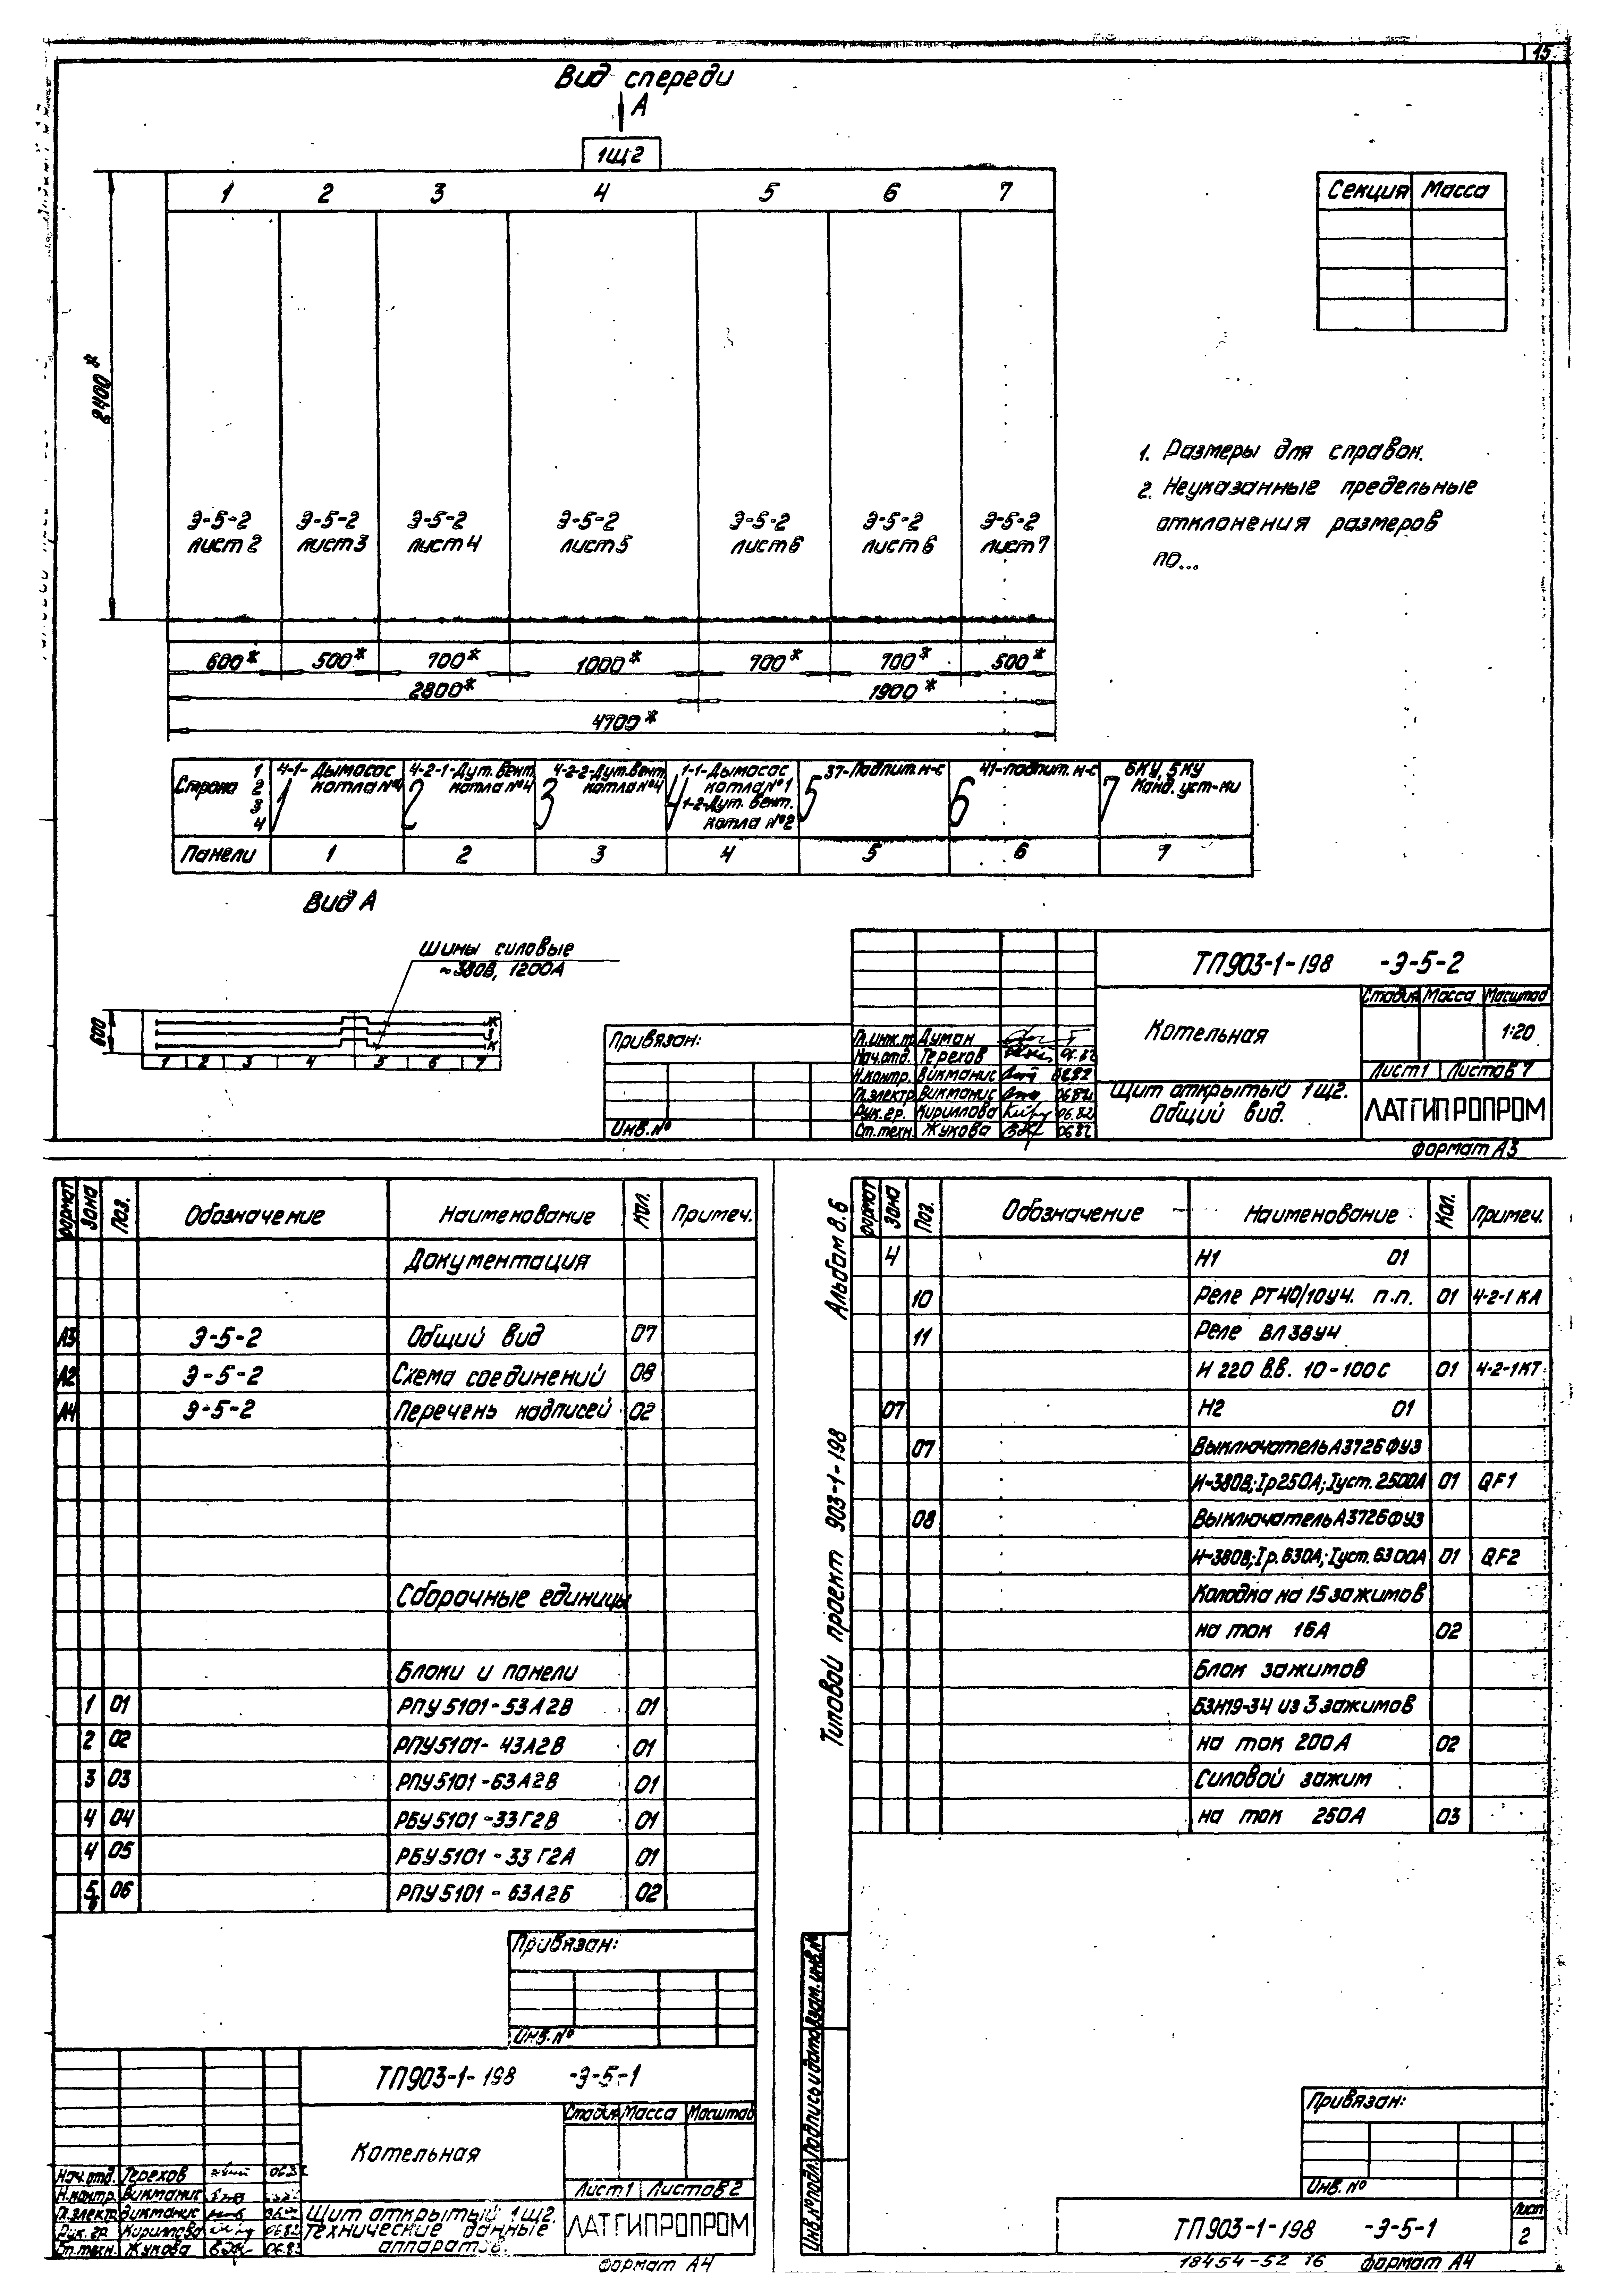 15
Вид спереди
А
1Щ2
1 2 3 4 5 6 7
Секция Масса
2400*
1. Размеры для справок.
2. Неуказанные предельные
отклонения размеров
по...
Э-5-2 Э-5-2 Э-5-2 Э-5-2 Э-5-2 Э-5-2 Э-5-2
лист 2 лист 3 лист 4 лист 5 лист 6 лист 6 лист 7
600* 500* 700* 1000* 700* 700* 500*
2800* 1900*
4700*
Сторона 1 2 3 4
1 4-1-Дымосос котла №4
2 4-2-1-Дут. вент. котла №4
3 4-2-2-Дут. вент. котла №4
4 1-1-Дымосос котла №1
1-2-Дут. вент. котла №2
5 37-Подпит. н-с
6 41-подпит. н-с
7 БКУ, 5КУ Конд. уст-ки
Панели 1 2 3 4 5 6 7
Вид А
Шины силовые
~380В, 1200А
600
1 2 3 4 5 6 7
Привязан:
Инв. №
Гл.инж.пр. Думан
Нач.отд. Терехов 06.82
Н.контр. Викманис 06.82
Гл.электр. Викманис 06.82
Рук.гр. Кириллова 06.82
Ст.техн. Жукова 06.82
ТП903-1-198 -Э-5-2
Котельная
Стадия Масса Масштаб
1:20
Лист 1 Листов 7
Щит открытый 1Щ2.
Общий вид.
ЛАТГИПРОПРОМ
формат А3
Формат Зона Поз. Обозначение Наименование Кол. Примеч.
Документация
А3 Э-5-2 Общий вид 07
А2 Э-5-2 Схема соединений 08
А4 Э-5-2 Перечень надписей 02
Сборочные единицы
Блоки и панели
1 01 РПУ5101-53А2В 01
2 02 РПУ5101-43А2В 01
3 03 РПУ5101-63А2В 01
4 04 РБУ5101-33Г2В 01
4 05 РБУ5101-33Г2А 01
5 6 06 РПУ5101-63А2Б 02
Привязан:
Инв. №
ТП903-1-198 -Э-5-1
Котельная
Стадия Масса Масштаб
Лист 1 Листов 2
Нач.отд. Терехов 06.82
Н.контр. Викманис
Гл.электр. Викманис
Рук.гр. Кириллова 06.82
Ст.техн. Жукова 06.82
Щит открытый 1Щ2.
Технические данные
аппаратов.
ЛАТГИПРОПРОМ
формат А4
Типовой проект 903-1-198 Альбом 8.6
Формат Зона Поз. Обозначение Наименование Кол. Примеч.
4 Н1 01
10 Реле РТ40/10У4. п.п. 01 4-2-1КА
11 Реле ВЛ38У4
И 220 В.В. 10-100С 01 4-2-1КТ
07 Н2 01
07 Выключатель А3726ФУ3
И~380В; Iр250А; Iуст. 2500А 01 QF1
08 Выключатель А3726ФУ3
И~380В; Iр.630А; Iуст. 6300А 01 QF2
Колодка на 15 зажимов
на ток 16А 02
Блок зажимов
БЗН19-34 из 3 зажимов
на ток 200А 02
Силовой зажим
на ток 250А 03
Инв.№ подл. Подпись и дата Взам. инв.№
Привязан:
Инв. №
ТП903-1-198 -Э-5-1
Лист
2
18454-52 16 формат А4